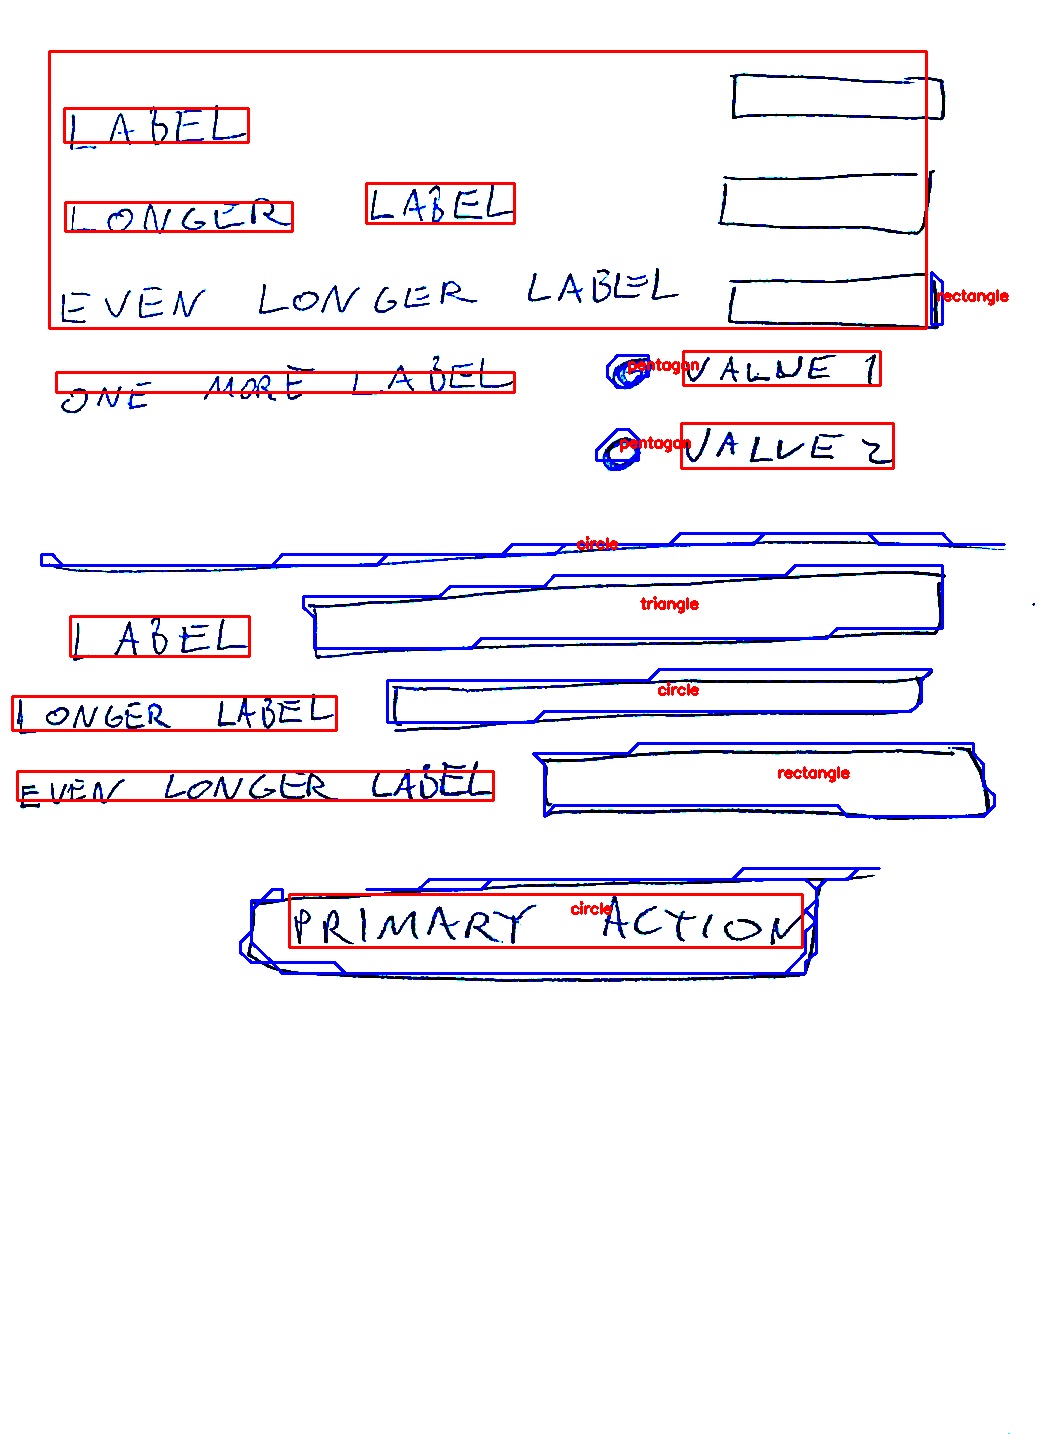 LABEL
LONGER LABEL
EVEN LONGER LABEL
rectangle
ONE MORE LABEL
pentagon
VALUE 1
pentagon
VALUE 2
circle
triangle
LABEL
circle
LONGER LABEL
rectangle
EVEN LONGER LABEL
circle
PRIMARY ACTION